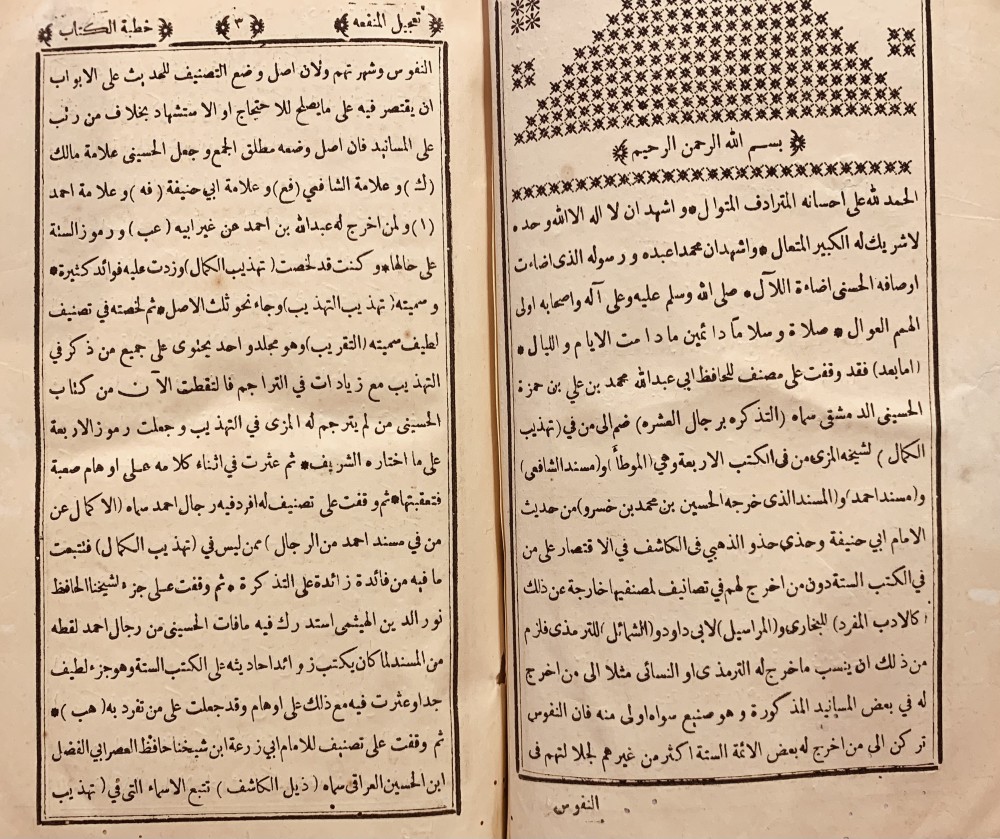 بسم الله الرحمن الرحيم
الحمد لله على احسانه المترادف المتوال * واشهد ان لا اله الا الله وحده
لا شريك له الكبير المتعال * واشهد ان محمدا عبده ورسوله الذى اضاءت
اوصافه الحسنى اضاءة اللآل * صلى الله وسلم عليه وعلى آله واصحابه اولى
الهمم العوال * صلاة وسلاما دائمين ما دامت الايام والليال *
(اما بعد) فقد وقفت على مصنف للحافظ ابى عبد الله محمد بن على بن حمزة
الحسينى الدمشقى سماه (التذكره برجال العشره) ضم الى من في (تهذيب
الكمال) لشيخه المزى من فى الكتب الاربعة وهي (الموطأ) و(مسند الشافعى)
و(مسند احمد) و(المسند الذى خرجه الحسين بن محمد بن خسرو) من حديث
الامام ابي حنيفة وحذى حذو الذهبي فى الكاشف في الاقتصار على من
في الكتب الستة دون من اخرج لهم في تصانيف لمصنفيها خارجة عن ذلك
(كالادب المفرد) للبخارى و(المراسيل) لابى داود و(الشمائل) للترمذى فلزم
من ذلك ان ينسب ما خرج له الترمذى او النسائى مثلا الى من اخرج
له في بعض المسانيد المذكورة وهو صنيع سواه اولى منه فان النفوس
تركن الى من اخرج له بعض الائمة الستة اكثر من غيرهم لجلالتهم فى
النفوس
تعجيل المنفعه ﴿٣﴾ خطبة الكتاب
النفوس وشهرتهم ولان اصل وضع التصنيف للحديث على الابواب
ان يقتصر فيه على ما يصلح للاحتجاج او الاستشهاد بخلاف من رتب
على المسانيد فان اصل وضعه مطلق الجمع وجعل الحسينى علامة مالك
(ك) وعلامة الشافعي (فع) وعلامة ابي حنيفة (فه) وعلامة احمد
(ا) ولمن اخرج له عبد الله بن احمد عن غير ابيه (عب) ورموز الستة
على حالها * وكنت قد لخصت (تهذيب الكمال) وزدت عليه فوائد كثيرة *
وسميته (تهذيب التهذيب) وجاء نحو ثلث الاصل * ثم لخصته في تصنيف
لطيف سميته (التقريب) وهو مجلد واحد يحتوى على جميع من ذكر في
التهذيب مع زيادات في التراجم فالتقطت الآن من كتاب
الحسينى من لم يترجم له المزى في التهذيب وجعلت رموز الاربعة
على ما اختاره الشريف * ثم عثرت في اثناء كلامه على اوهام صعبة
فتعقبتها * ثم وقفت على تصنيف له افرد فيه رجال احمد سماه (الاكمال عن
من في مسند احمد من الرجال) ممن ليس في (تهذيب الكمال) فتتبعت
ما فيه من فائدة زائدة على التذكرة * ثم وقفت على جزء لشيخنا الحافظ
نور الدين الهيثمى استدرك فيه ما فات الحسينى من رجال احمد لقطه
من المسند لما كان يكتب زوائد احاديثه على الكتب الستة وهو جزء لطيف
جدا وعثرت فيه مع ذلك على اوهام وقد جعلت على من تفرد به (هب) *
ثم وقفت على تصنيف للامام ابي زرعة ابن شيخنا حافظ العصر ابي الفضل
ابن الحسين العراقى سماه (ذيل الكاشف) تتبع الاسماء التى في (تهذيب